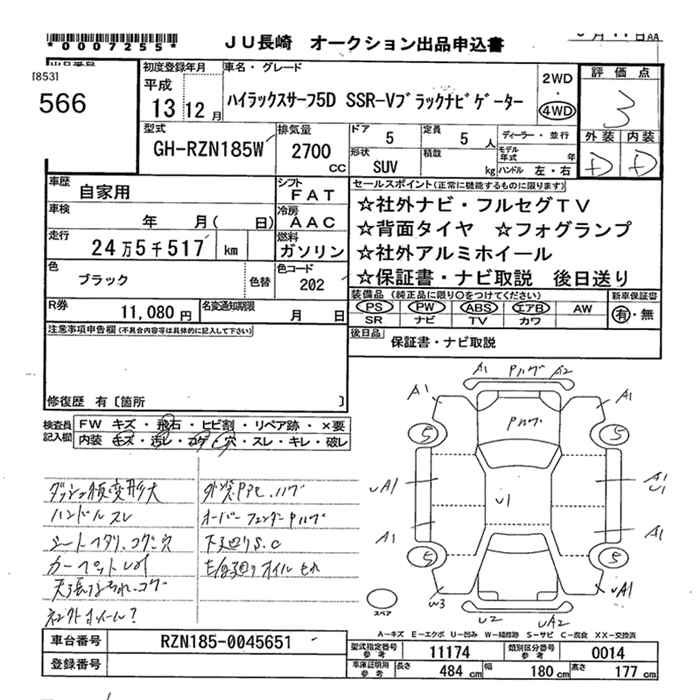 *0007255*
JU長崎 オークション出品申込書
[853]
566
初度登録年月
平成
13 12月
車名・グレード
ハイラックスサーフ5D SSR-Vブラックナビゲーター
2WD
・
4WD
評価点
3
外装 内装
D D
型式
GH-RZN185W
排気量
2700
CC
ドア 5
定員 5 人
形状 SUV
積数 kg
ディーラー・並行
モデル年式 年
ハンドル 左・右
車歴 自家用
シフト FAT
車検 年 月( 日)
冷房 AAC
走行 24万5千517 km
燃料 ガソリン
色 ブラック
色替
色コード 202
セールスポイント(正常に機能するものに限ります)
☆社外ナビ・フルセグTV
☆背面タイヤ ☆フォグランプ
☆社外アルミホイール
☆保証書・ナビ取説 後日送り
R券 11,080円
名変通知期限 月 日
装備品 (純正品に限り○をつけてください)
PS PW ABS エアB AW
SR ナビ TV カワ
新車保証書
有・無
後日品 保証書・ナビ取説
注意事項申告欄(不具合内容等は具体的に記入して下さい)
修復歴 有〔箇所 〕
検査員記入欄
FW キズ・飛石・ヒビ割・リペア跡・×要
内装 キズ・汚レ・コゲ・穴・スレ・キレ・破レ
ダッシュ板変形大
ハンドルスレ
シートヘタリ、コゲ穴
オーバーフェンダーPハゲ
下廻りS.C
A1 Pハゲ A2
A1 A1
Pハゲ
5 5
uA1 A1
U1
U1
A1 A1
5 5
W3 uA1
U2 UA2
スペア
A－キズ E－エクボ U－凹み W－補修跡 S－サビ C－腐食 XX－交換済
車台番号 RZN185-0045651
登録番号
型式指定番号 参考 11174
類別区分番号 参考 0014
車庫証明用 参考 長さ 484 cm 幅 180 cm 高さ 177 cm